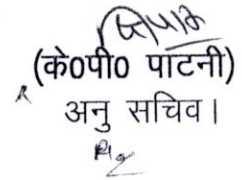 (के०पी० पाटनी)
अनु सचिव।